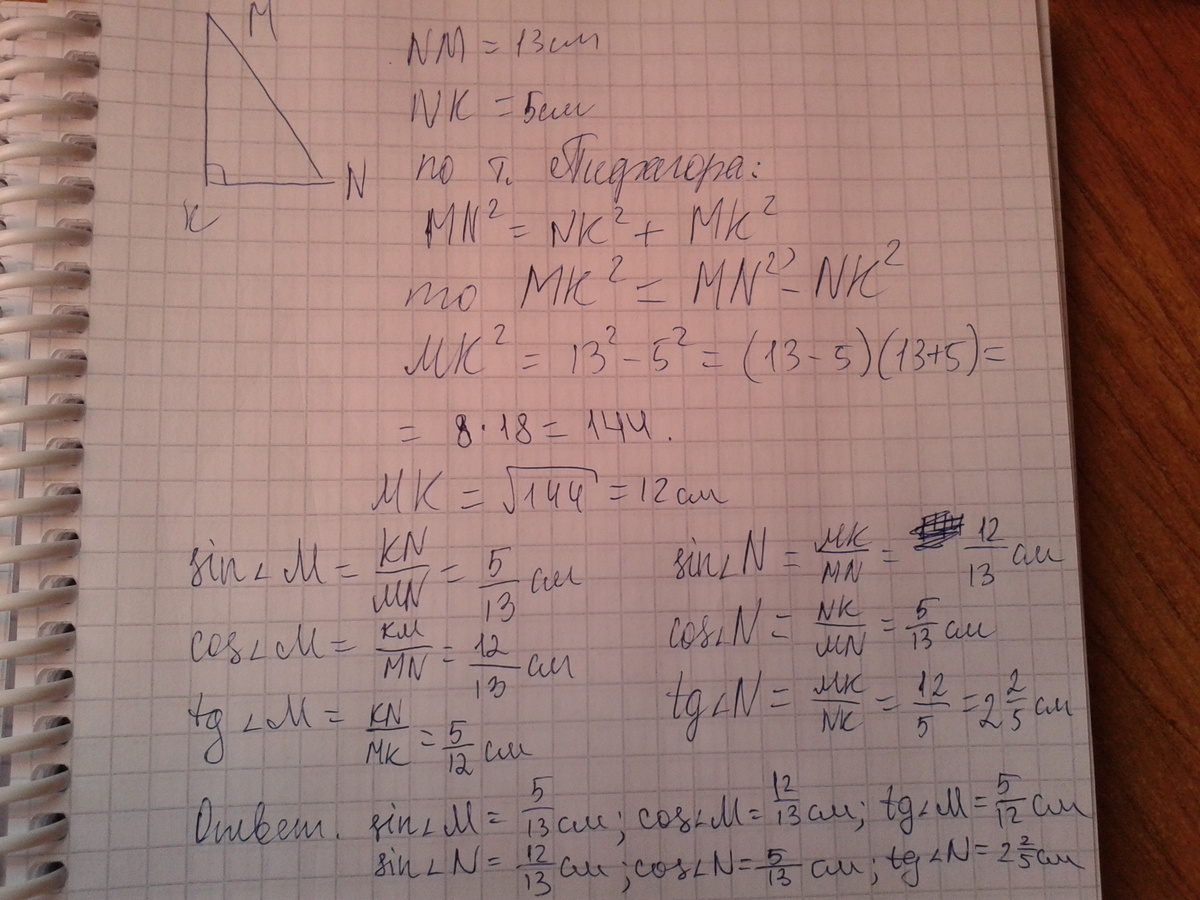 M
NM = 13 см
NK = 5 см
N
K
по т. Пифагора:
MN² = NK² + MK²
то MK² = MN² - NK²
MK² = 13² - 5² = (13 - 5)(13+5) =
= 8 · 18 = 144.
MK = √144 = 12 см
sin∠M = KN/MN = 5/13 см sin∠N = MK/MN = 12/13 см
cos∠M = KM/MN = 12/13 см cos∠N = NK/MN = 5/13 см
tg∠M = KN/MK = 5/12 см tg∠N = MK/NK = 12/5 = 2 2/5 см
Ответ. sin∠M = 5/13 см; cos∠M = 12/13 см; tg∠M = 5/12 см
sin∠N = 12/13 см; cos∠N = 5/13 см; tg∠N = 2 2/5 см